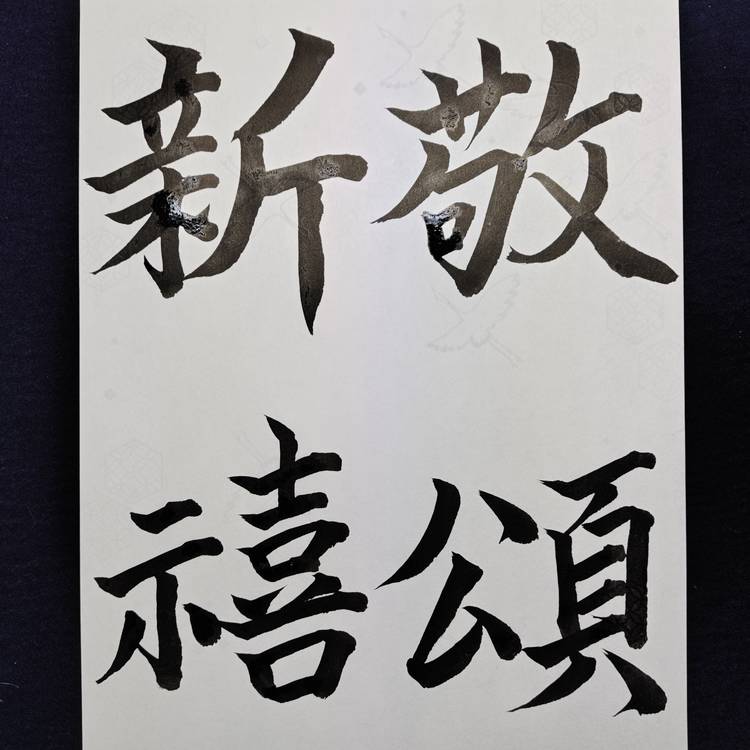 敬頌
新禧